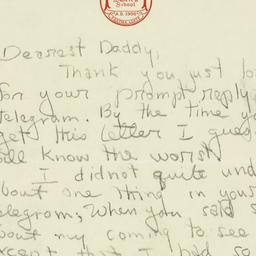 School
A.D. 1906
Dearest Daddy,
Thank you just
for your prompt reply
telegram. By the time yo
gets this letter I gues
will know the worst
I didnot quite und
bout one thing in your
elegram, When you said s
bout my coming to see
xcept that I had so